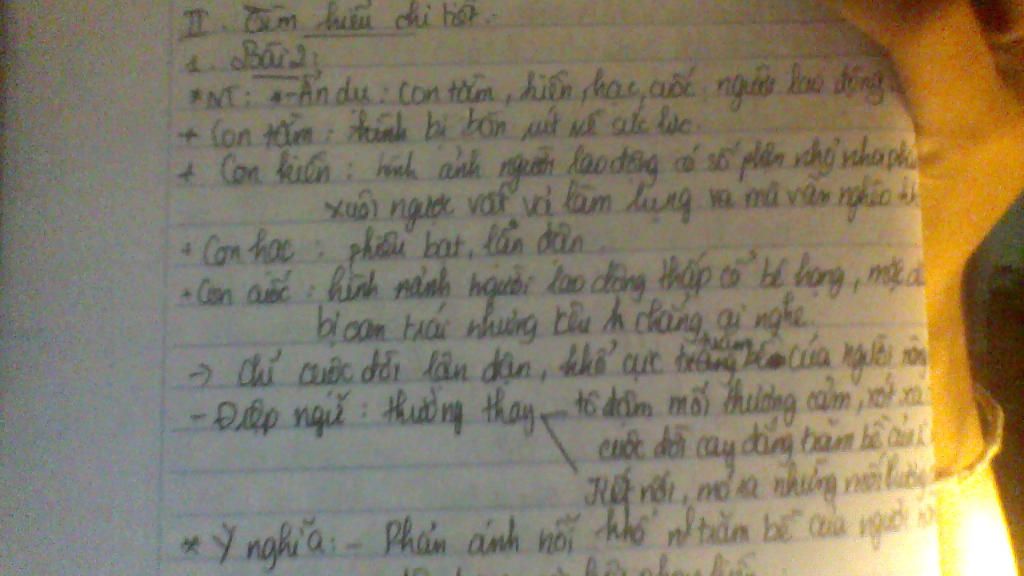 II. Tìm hiểu chi tiết.
1. Bài 2:
*NT: *-Ẩn dụ: con tằm, kiến, hạc, cuốc: người lao động
+ Con tằm: thành bị bòn rút về sức lực.
+ Con kiến: hình ảnh người lao động có số phận nhỏ nhoi
xuôi ngược vất vả làm lụng ra mà vẫn nghèo
+ Con hạc: phiêu bạt, lận đận.
+ Con cuốc: hình ảnh người lao động thấp cổ bé họng,
bị oan trái nhưng kêu chẳng ai nghe.
-> chỉ cuộc đời lận đận, khổ cực trăm bề của người
- Điệp ngữ: thương thay tô đậm mối thương cảm, xót xa
cuộc đời cay đắng trăm bề
Kết nối, mở ra những nỗi thương
* Ý nghĩa: - Phản ánh nỗi khổ trăm bề của người